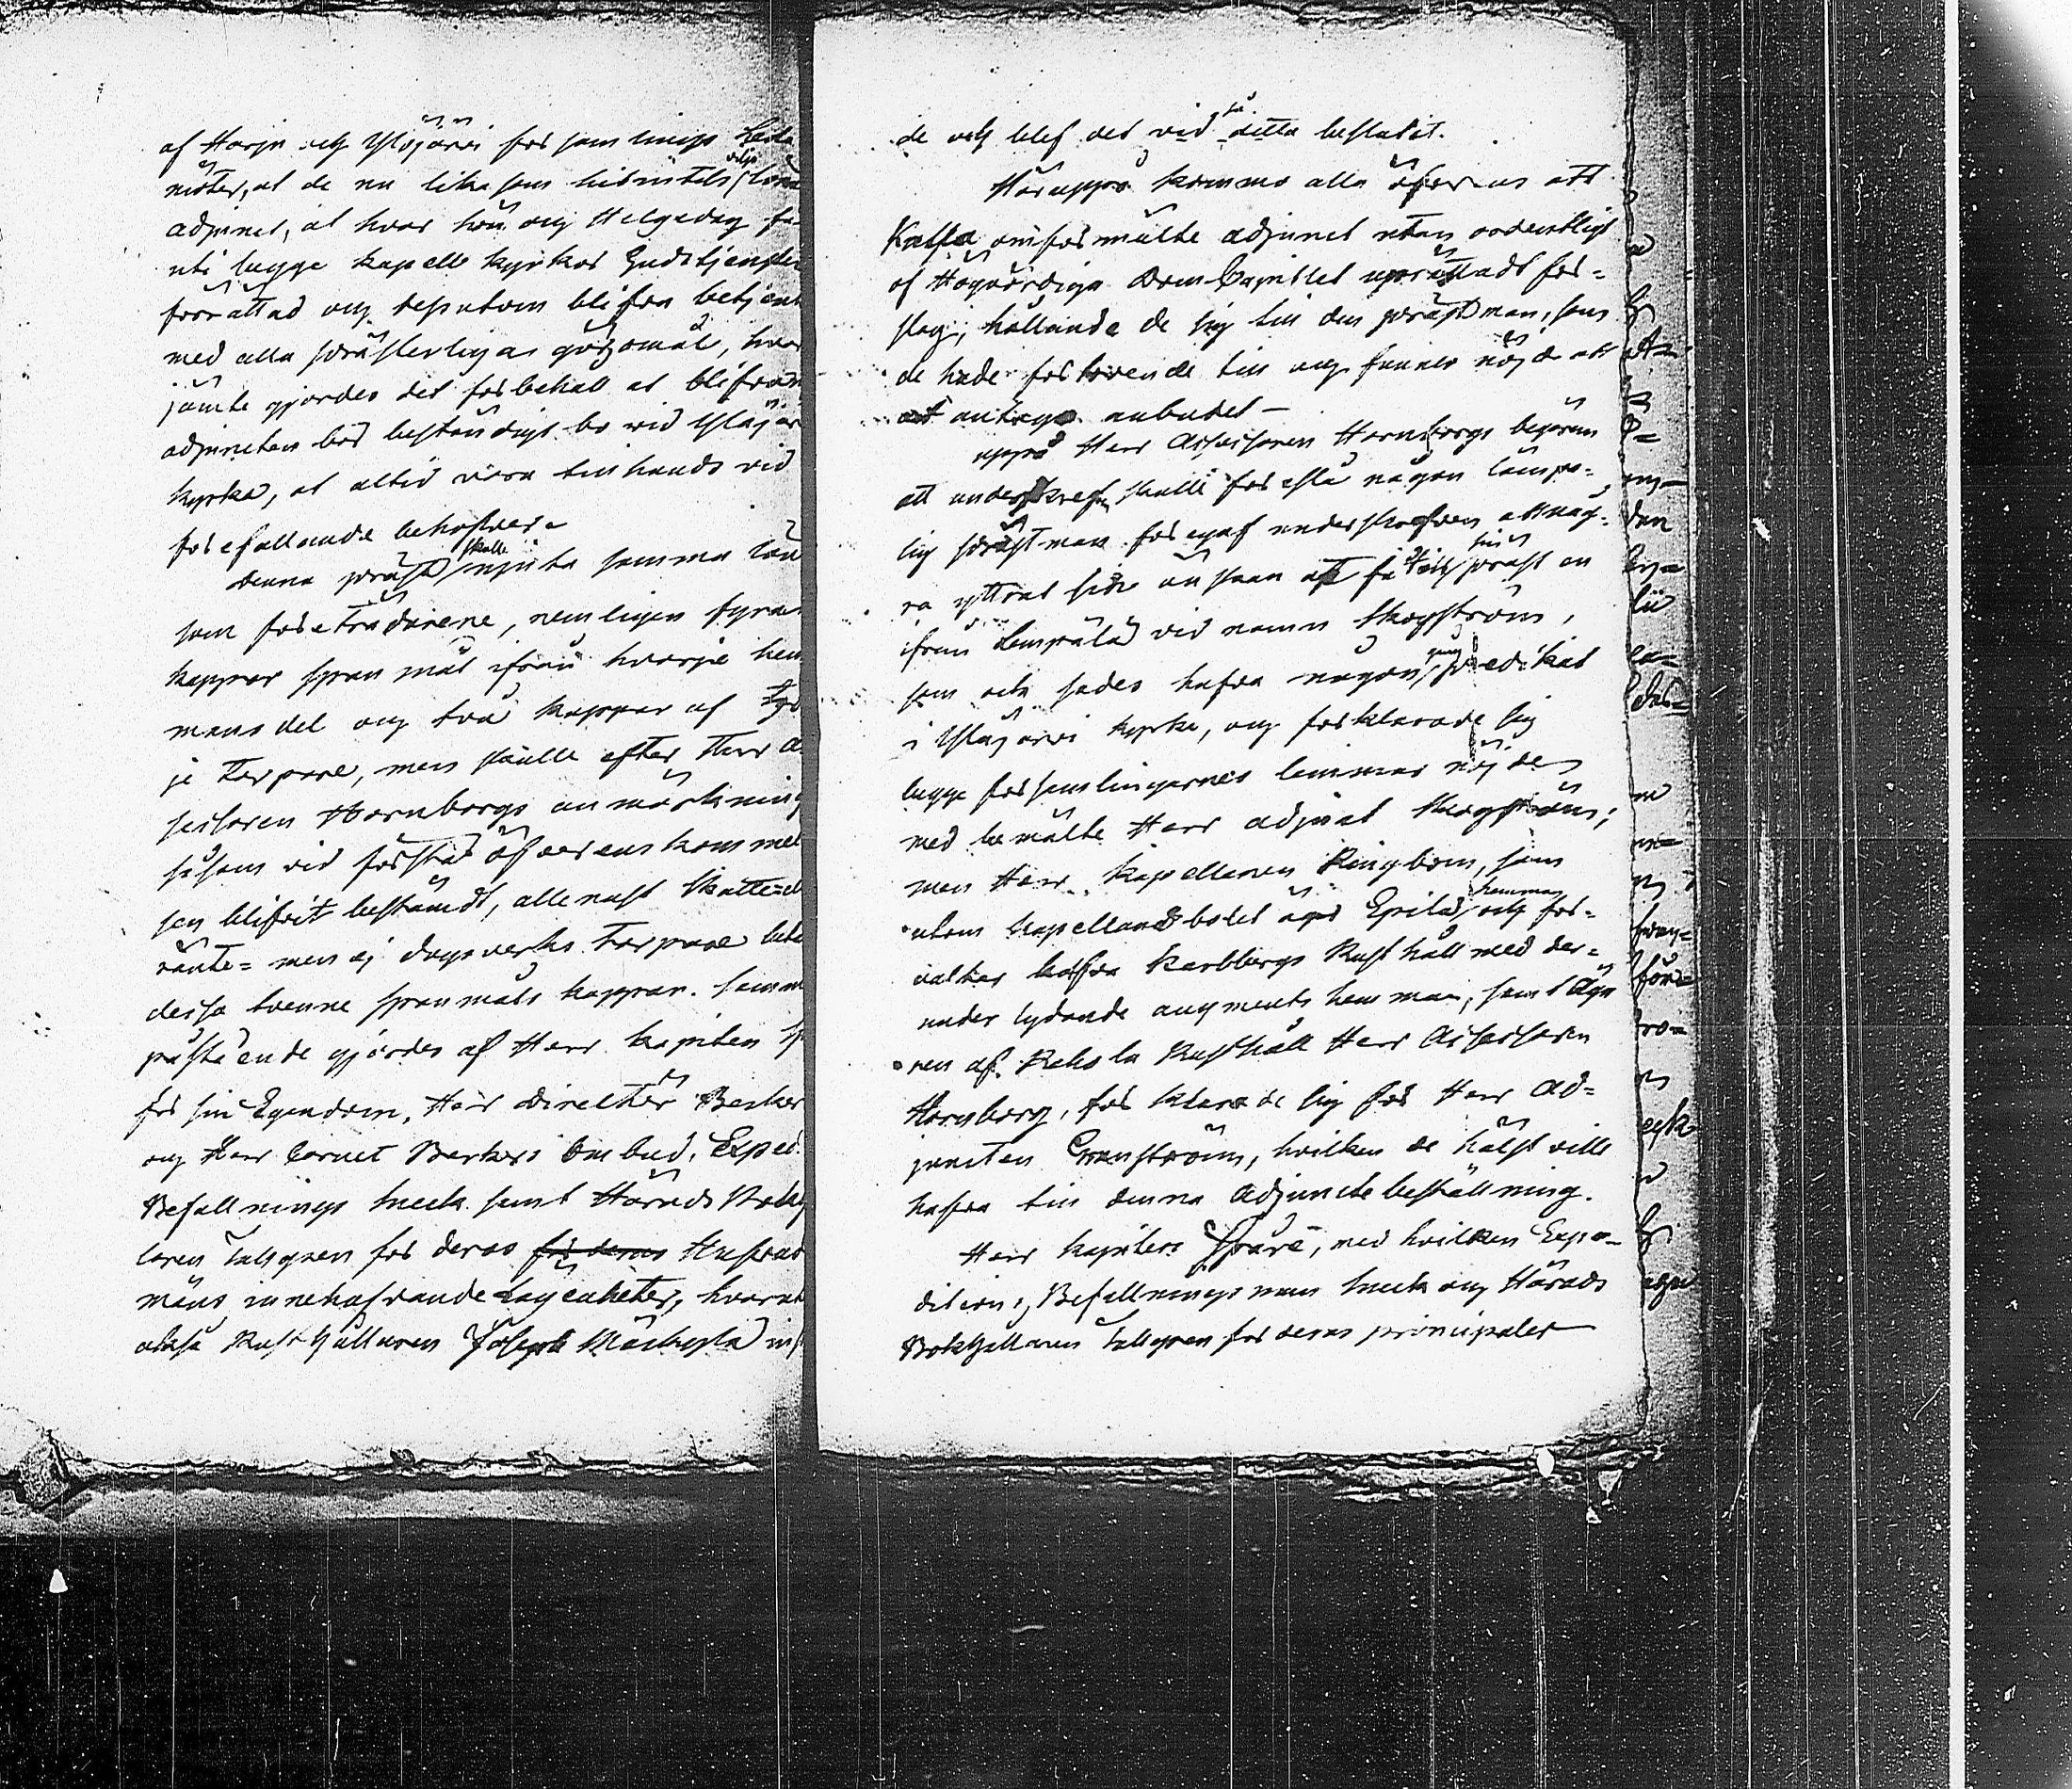 af Harju och Ylöjärvi församlings Leda
möter, at de nu likasom hitintils vilja löna
adjunct, at hvar sön och Helgedag få
uti begge kapell kyrkor Gudstjensten
förrättad och desutom blifva betjent
med alla prästerliga göromål, hvar
jämte gjordes det förbehåll at blifvan
adjuncten bör beständigt bo vid Ylöjär
kyrka, at altid vara tillhands vid
förefallande behofver.
denna präst skulle njuta samma lön
som företrädarene, nemligen fyra
kappar spanmål ifrån hvarje hem
mans del och två kappar af
je Torpare, men skulle efter Herr A
sessoren Hornborgs anmärkning
såsom vid första öfverenskommel
sen blifvit bestämdt, allenast skatte-el
ränte- men ej dagsverks Torpare beta
dessa tvenne spanmåls kappar. samm
påstående gjordes af Herr Kapiten Sp
för sin Egendom, Herr Direcktör Becker
och Herr Cornet Beckers Ombud, Exped.
Befallnings samt Härads Bokh
laren Tallgren för deras för deras Husbond
mäns innehafvande Lägenheter, hvarut
också Rusthållaren Joseph
de och blef det vid så detta beslutit.
Häruppå kommo alla öfverens att
Kalla omförmälte adjunct utan ordentligt
af Högvördiga DomCapitlet upprättadt för-
slag, hållande de sig till den prästman, som
de hade förtroende till och funnes nöjd att
at antaga anbudet –
uppå Herr Assessoren Hornborgs begäran
att underskrefn skulle föreslå någon lämpe-
lig prästman före gaf underskrefven att någ-
ra yttrat sin önskan at få till sin präst en
ifrån Lempälä vid namn Skogström,
som ock sades hafva någon gång predikat
i Ylöjärvi kyrka, och förklarade sig
begge församlingarnes lemmar nöjde
med bemälte Herr adjunct Skogström;
men Herr Kapellanen Ringbom, som
utom kapellansbolet äger Epilä hemman och för-
valtar Karlbergs Rusthåll med der-
under lydande augments hemman, samt Äga
ren af Rahola Rusthåll Herr Assessoren
Hornborg, förklarade sig för Herr Ad-
juncten Granström, hvilken de hälst ville
hafva till denna Adjuncts beställning.
Herr Kapiten Spåre, med hvilken Expe-
ditions, Befallningsman och Härads
Bokhållaren Tallgren för deras principaler